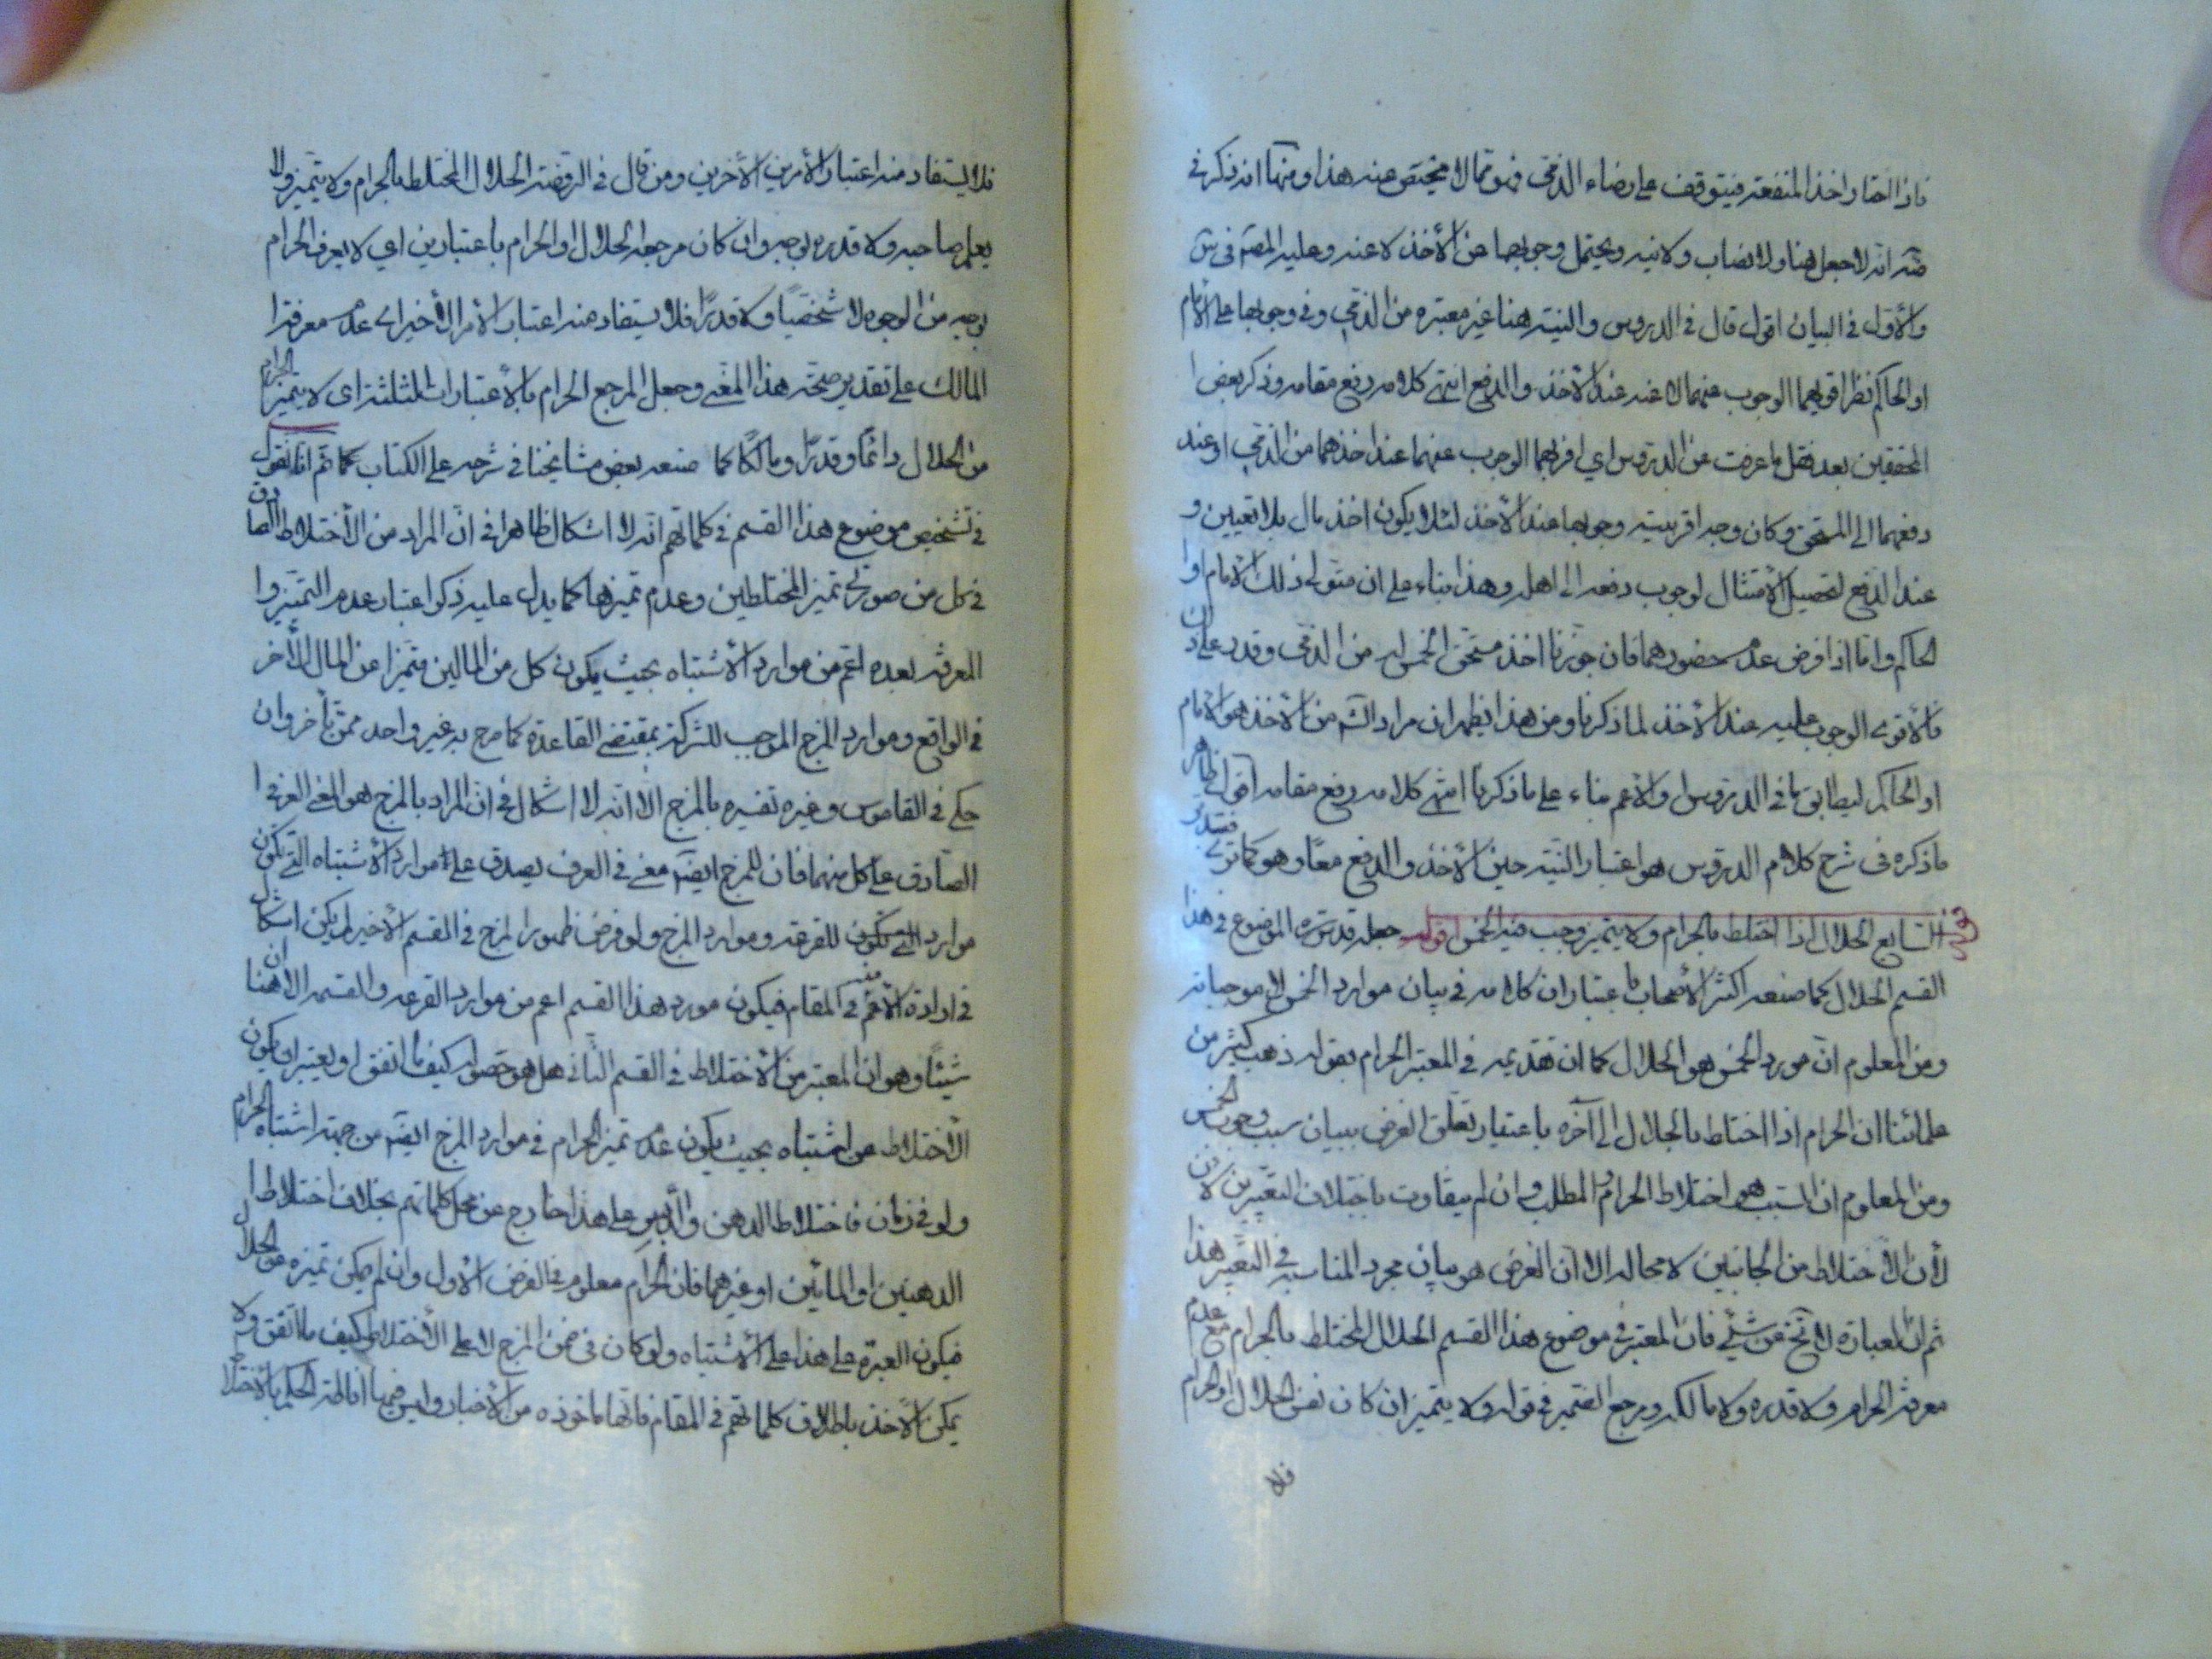 فاذا اختار اخذ المنفعة فيتوقف على رضاء الذمي وهو مما لا محيص عنه هذا ومنها انه ذكر في
ضة انه لا حول هنا ولا نصاب ولا نية ويحتمل وجوبها عن الأخذ لا عنه وعليه المصنف في س
والأول في البيان اقول قال في الدروس والنية هنا غير معتبرة من الذمي وفي وجوبها على الأمام
او الحاكم نظر اقربهما الوجوب عنهما لا عنه عند الأخذ والدفع انتهى كلامه رفع مقامه وذكر بعض ا
المحققين بعد نقل ما عرفت عن الدروس اي اقربهما الوجوب عنهما عند اخذهما من الذمي او عند
دفعهما الى المستحق وكان وجه اقربيته وجوبها عند الأخذ لئلا يكون اخذ مال بلا تعيين و
عند الدفع لتحصيل الأمتثال لوجوب دفعه الى اهله وهذا بناء على ان متولي ذلك الأمام او ا
لحاكم واما اذا فرض عدم حضورهما فان جوزنا اخذ مستحق الخمس له من الذمي وقدر على ذلك
فالأقوى الوجوب عليه عند الأخذ لما ذكرنا ومن هذا يظهر ان مراد الشه من الأخذ هو الأمام
او الحاكم ليطابق ما في الدروس او الأعم بناء على ما ذكرنا انتهى كلامه رفع مقامه اقول ظاهر
ما ذكره في شرح كلام الدروس هو اعتبار النية حين الأخذ والدفع معا وهو كما ترى فتدبر
قوله السابع الحلال اذا اختلط بالحرام ولا يتميز وجب فيه الخمس اقول جعله قدس سره الموضوع في هذا
القسم الحلال كما صنعه اكثر الأصحاب باعتبار ان كلامه في بيان موارد الخمس لا موجباته
ومن المعلوم ان مورد الخمس هو الحلال كما ان تقديمه في المعتبر الحرام بقوله ذهب كثير من
علمائنا ان الحرام اذا اختلط بالحلال الى آخره باعتبار تعلق الغرض ببيان سبب وجوب الخمس
ومن المعلوم ان السبب هو اختلاط الحرام والمطلب وان لم يتفاوت باختلاف التعبيرين
لأن الأختلاط من الجانبين لا محالة الا ان الغرض هو بيان مجرد المناسبة في التعبير هذا
ثم ان العبارة لا تخ عن شيء فان المعتبر في موضوع هذا القسم الحلال المختلط بالحرام مع عدم
معرفة الحرام ولا قدره ولا مالكه ومرجع الضمير في قوله ولا يتميز ان كان نفس الحلال او الحرام
فلا
فلا يستفاد منه اعتبار الأمرين الأخرين ومن قال في الروضة الحلال المختلط بالحرام ولا يتميز ولا
يعلم صاحبه ولا قدره بوجه وان كان مرجعه الحلال او الحرام باعتبارين اي لا يعرف الحرام
بوجه من الوجوه لا شخصيا ولا قدرا فلا يستفاد منه اعتبار الأمر الأخير اي عدم معرفة ا
لمالك على تقدير صحة هذا المعنى وجعل المرجع الحرام بالأعتبارات الثلثة اي لا يتميز الحرام
من الحلال ذاتا وقدرا ومالكا كما صنعه بعض مشايخنا في شرحه على الكتاب كما ثم انا نقول
في تشخيص موضوع هذا القسم في كلماتهم انه لا اشكال ظاهرا في ان المراد من الأختلاط الصادق
في كل من صورتي تميز المختلطين وعدم تميزهما كما يدل عليه ذكر اعتبار عدم التميز وا
لمعرفة بعده اعم من موارد الأشتباه بحيث يكون كل من المالين متميزا عن المال الأخر
في الواقع وموارد المزج الموجب للشركة بمقتضى القاعدة كما صرح به غير واحد ممن تأخر وان
حكي في القاموس وغيره تفسيره بالمزج الا انه لا اشكال في ان المراد بالمزج هو المعنى العرفي ا
لصادق على كل منهما فان للمزج ايضا معنى في العرف يصدق على موارد الأشتباه التي تكون
موارد للقرعة وموارد المزج ولو فرض ظهور المزج في القسم الأخير لم يكن اشكال
في ارادة الأعم منه في المقام فيكون مورد هذا القسم اعم من موارد القرعة والقسمة الا ان هنا
شيئا وهو ان المعتبر من الأختلاط في القسم الثاني هل هو حصوله كيف ما اتفق او يعتبر ان يكون
الأختلاط عن اشتباه بحيث يكون عدم تميز الحرام في موارد المزج ايضا من جهة اشتباه الحرام
ولو في زمان فاختلاط الدهن والدبس على هذا خارج عن محل كلماتهم بخلاف اختلاط ا
لدهنين او المائين او غيرهما فان الحرام معلوم في الفرض الأول وان لم يمكن تميزه من الحلال
فيكون العبرة على هذا على الأشتباه ولو كان في ضمن المزج لا على الأختلاط كيف ما اتفق ولا
يمكن الأخذ باطلاق كلماتهم في المقام فانها مأخوذة من الأخبار وليس فيها اناطة الحكم بالأختلا